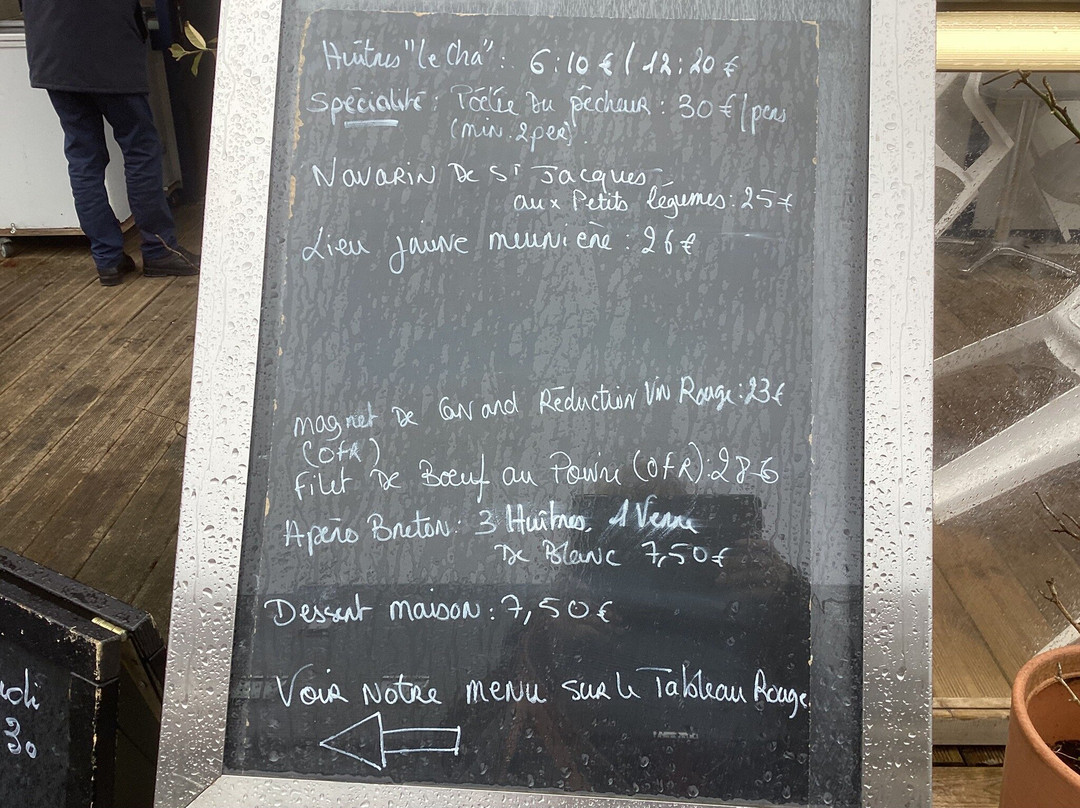 Huîtres "le Cha" : 6:10 € / 12:20 €
Spécialité : Poêlée Du pêcheur : 30 €/pers
(min. 2 pers)
Navarin De St Jacques
aux Petits légumes : 25 €
Lieu jaune meunière : 26 €
Magret De Canard Réduction Vin Rouge : 23 €
(OFR)
Filet De Bœuf au Poivre (OFR) : 28 €
Apéro Breton : 3 Huîtres, 1 Verre
De Blanc 7,50 €
Dessert maison : 7,50 €
Voir Notre menu sur le Tableau Rouge
di
30